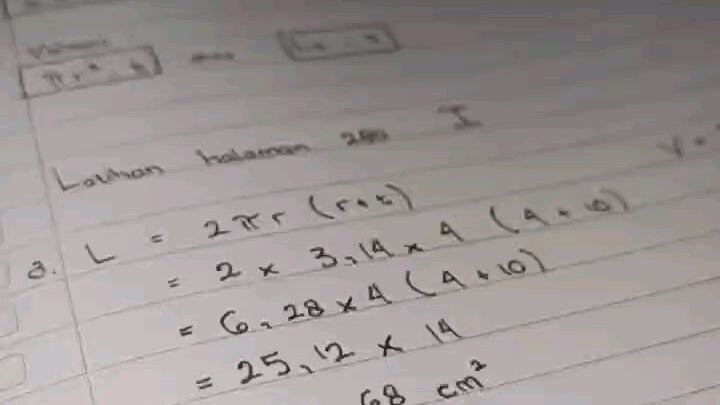 Volume
πr² . t atau La . t
Latihan halaman 280 I
V =
a. L = 2πr (r+t)
= 2 × 3,14 × 4 (4 + 10)
= 6,28 × 4 (4 + 10)
= 25,12 × 14
68 cm²